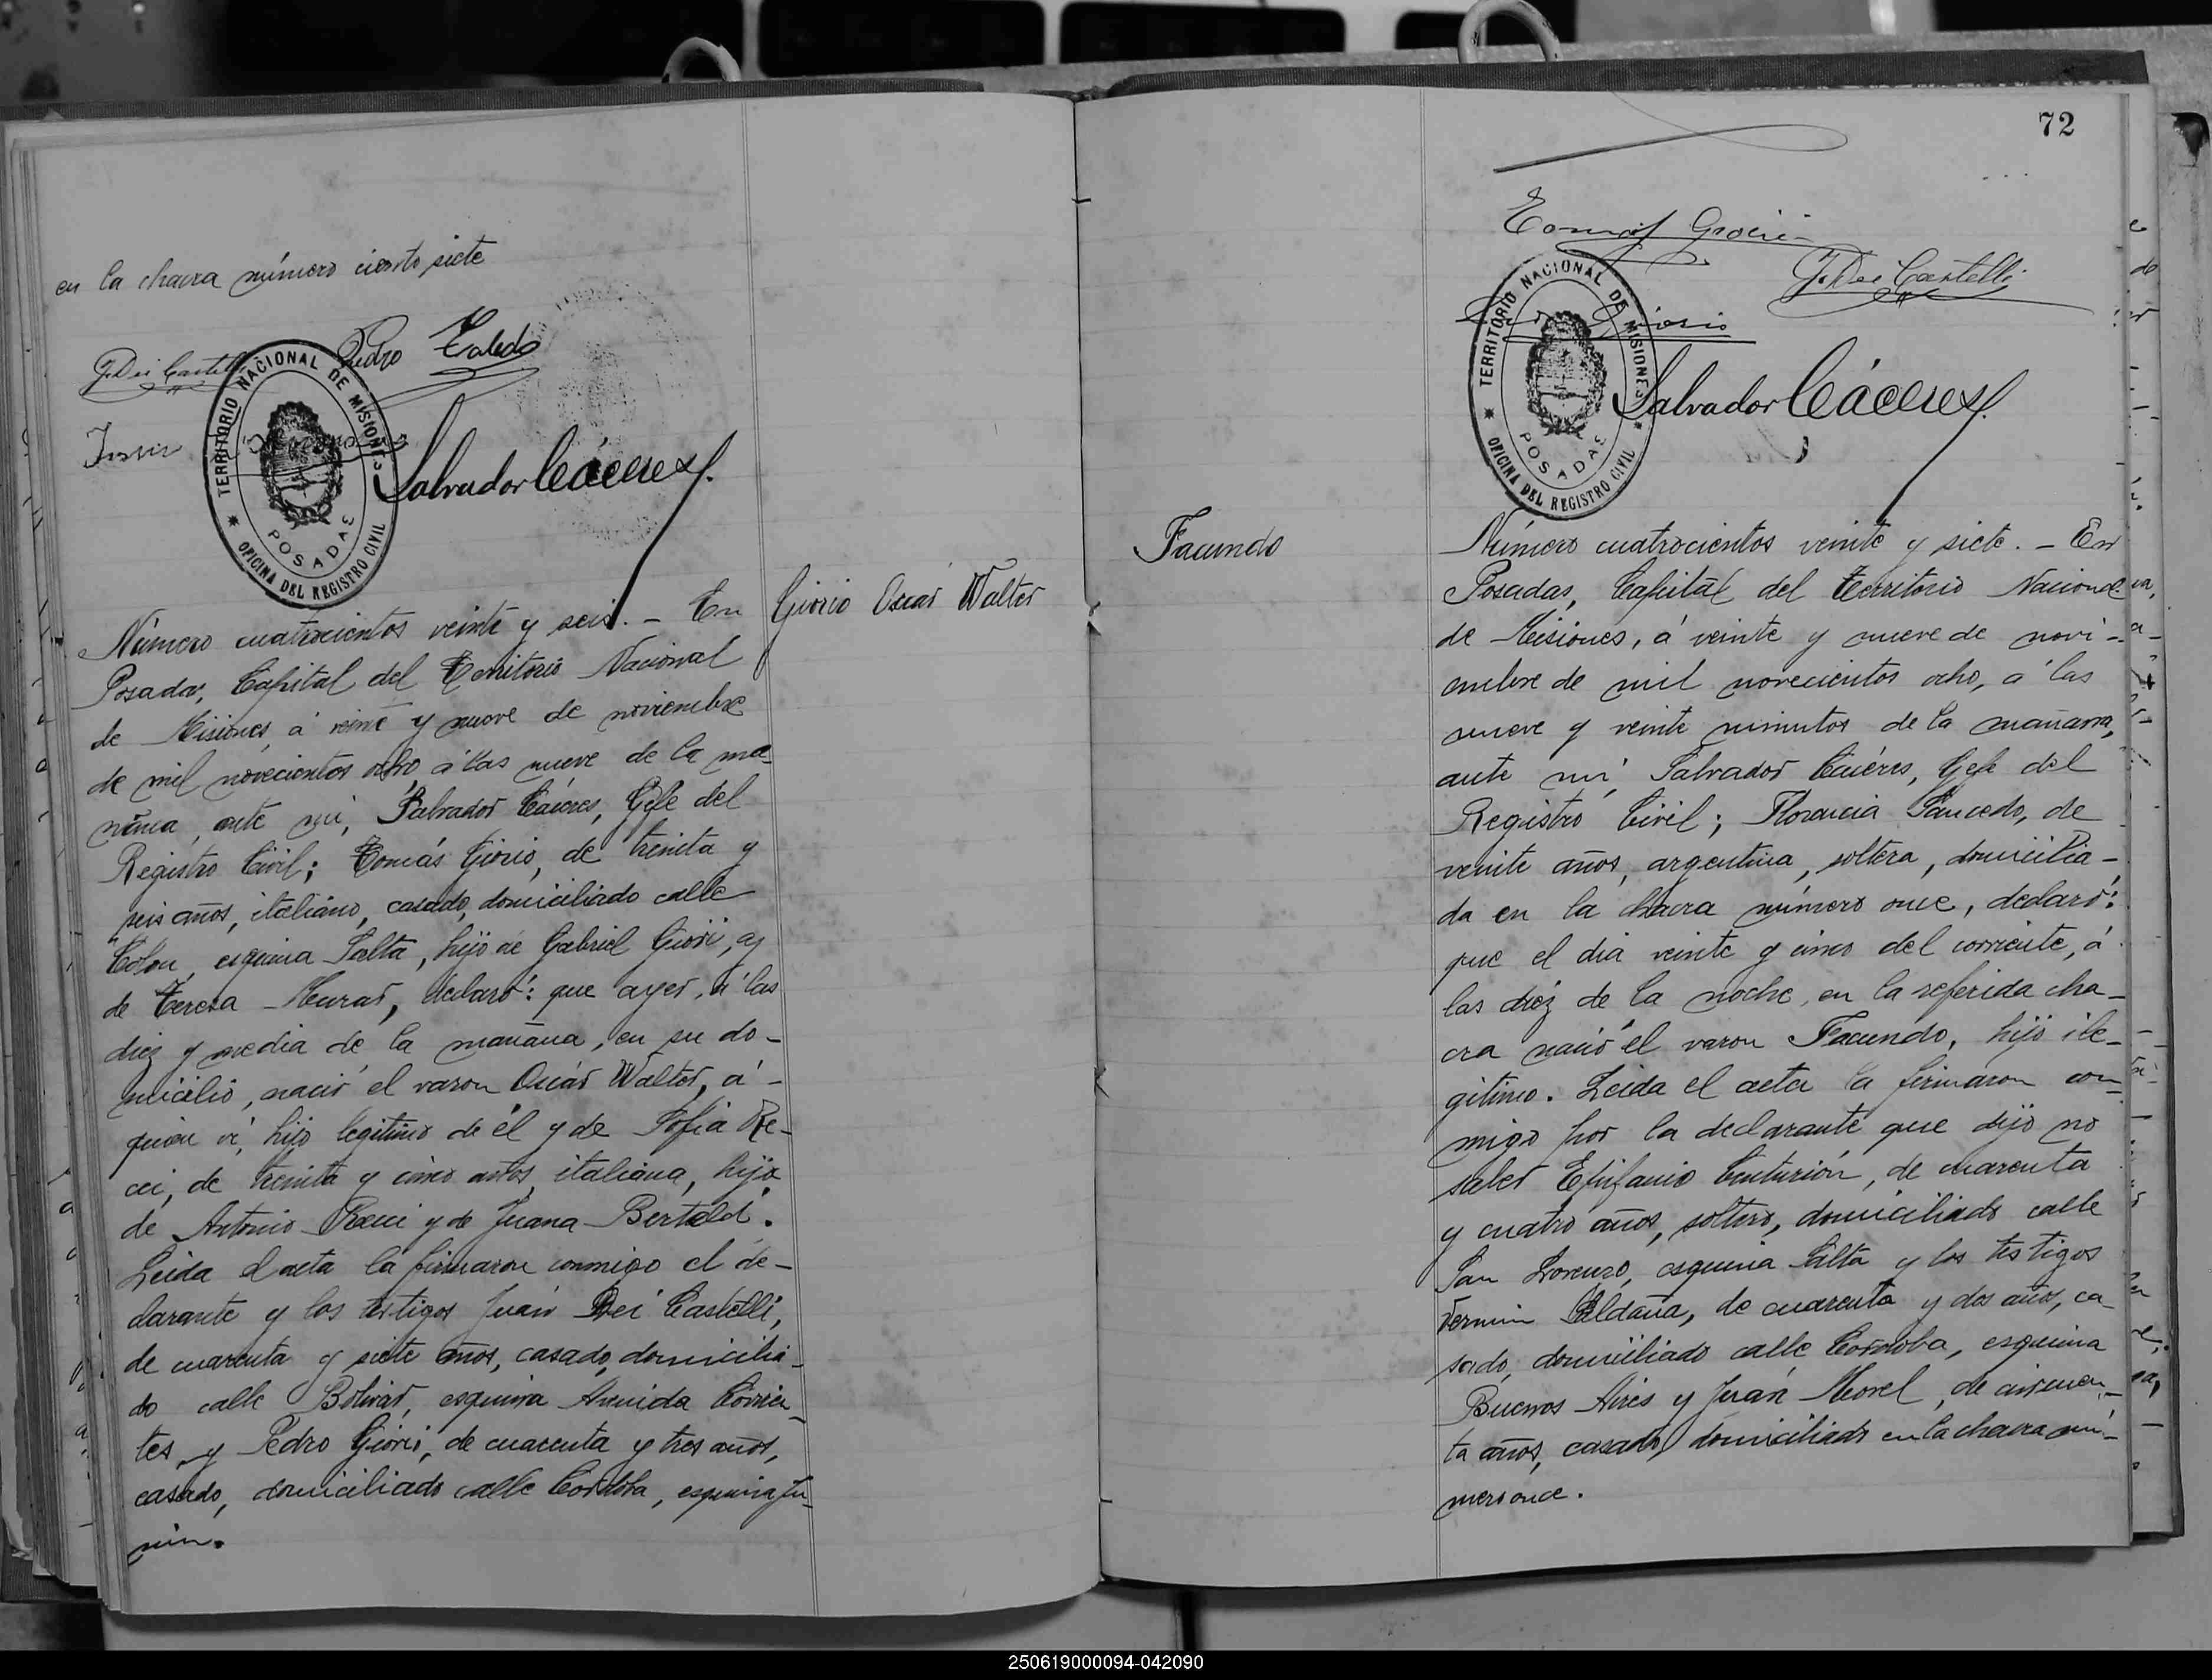 en la chacra número ciento siete
J. Dei Castelli
Pedro Toledo
TERRITORIO NACIONAL DE MISIONES
POSADAS
OFICINA DEL REGISTRO CIVIL
Salvador Cáceres
Número cuatrocientos veinte y seis. - En
Giorio Oscar Walter
Posadas, Capital del Territorio Nacional
de Misiones, á veinte y nueve de noviembre
de mil novecientos ocho, á las nueve de la ma-
ñana, ante mí, Salvador Cáceres, Gefe del
Registro Civil; Tomás Giorio, de treinta y
seis años, italiano, casado, domiciliado calle
Colon, esquina Salta, hijo de Gabriel Giori, y
de Teresa Murar, declaró: que ayer, á las
diez y media de la mañana, en su do-
micilio, nació el varon Oscar Walter, á
quien ví, hijo legítimo de él y de Sofía Re-
cci, de treinta y cinco años, italiana, hija
de Antonio Recci y de Juana Bertoldi.
Leida el acta la firmaron conmigo el de-
clarante y los testigos Juan Dei Castelli,
de cuarenta y siete años, casado, domicilia-
do calle Bolivar, esquina Avenida Corrien-
tes, y Pedro Giorio, de cuarenta y tres años,
casado, domiciliado calle Cordoba, esquina Ju-
nin.
72
Tomás Giorio
J. Dei Castelli
Giorio
TERRITORIO NACIONAL DE MISIONES
POSADAS
OFICINA DEL REGISTRO CIVIL
Salvador Cáceres
Facundo
Número cuatrocientos veinte y siete. - En
Posadas, Capital del Territorio Nacional
de Misiones, á veinte y nueve de novi-
embre de mil novecientos ocho, á las
nueve y veinte minutos de la mañana,
ante mí, Salvador Cáceres, Gefe del
Registro Civil; Florencia Saucedo, de
veinte años, argentina, soltera, domicilia-
da en la chacra número once, declaró:
que el dia veinte y cinco del corriente, á
las diez de la noche, en la referida cha-
cra nació el varon Facundo, hijo ile-
gitimo. Leida el acta la firmaron con-
migo por la declarante que dijo no
saber Epifanio Centurión, de cuarenta
y cuatro años, soltero, domiciliado calle
San Lorenzo, esquina Salta y los testigos
Fermin Saldaña, de cuarenta y dos años, ca-
sado, domiciliado calle Cordoba, esquina
Buenos Aires y Juan Morel, de cincuen-
ta años, casado, domiciliado en la chacra nú-
mero once.
250619000094-042090